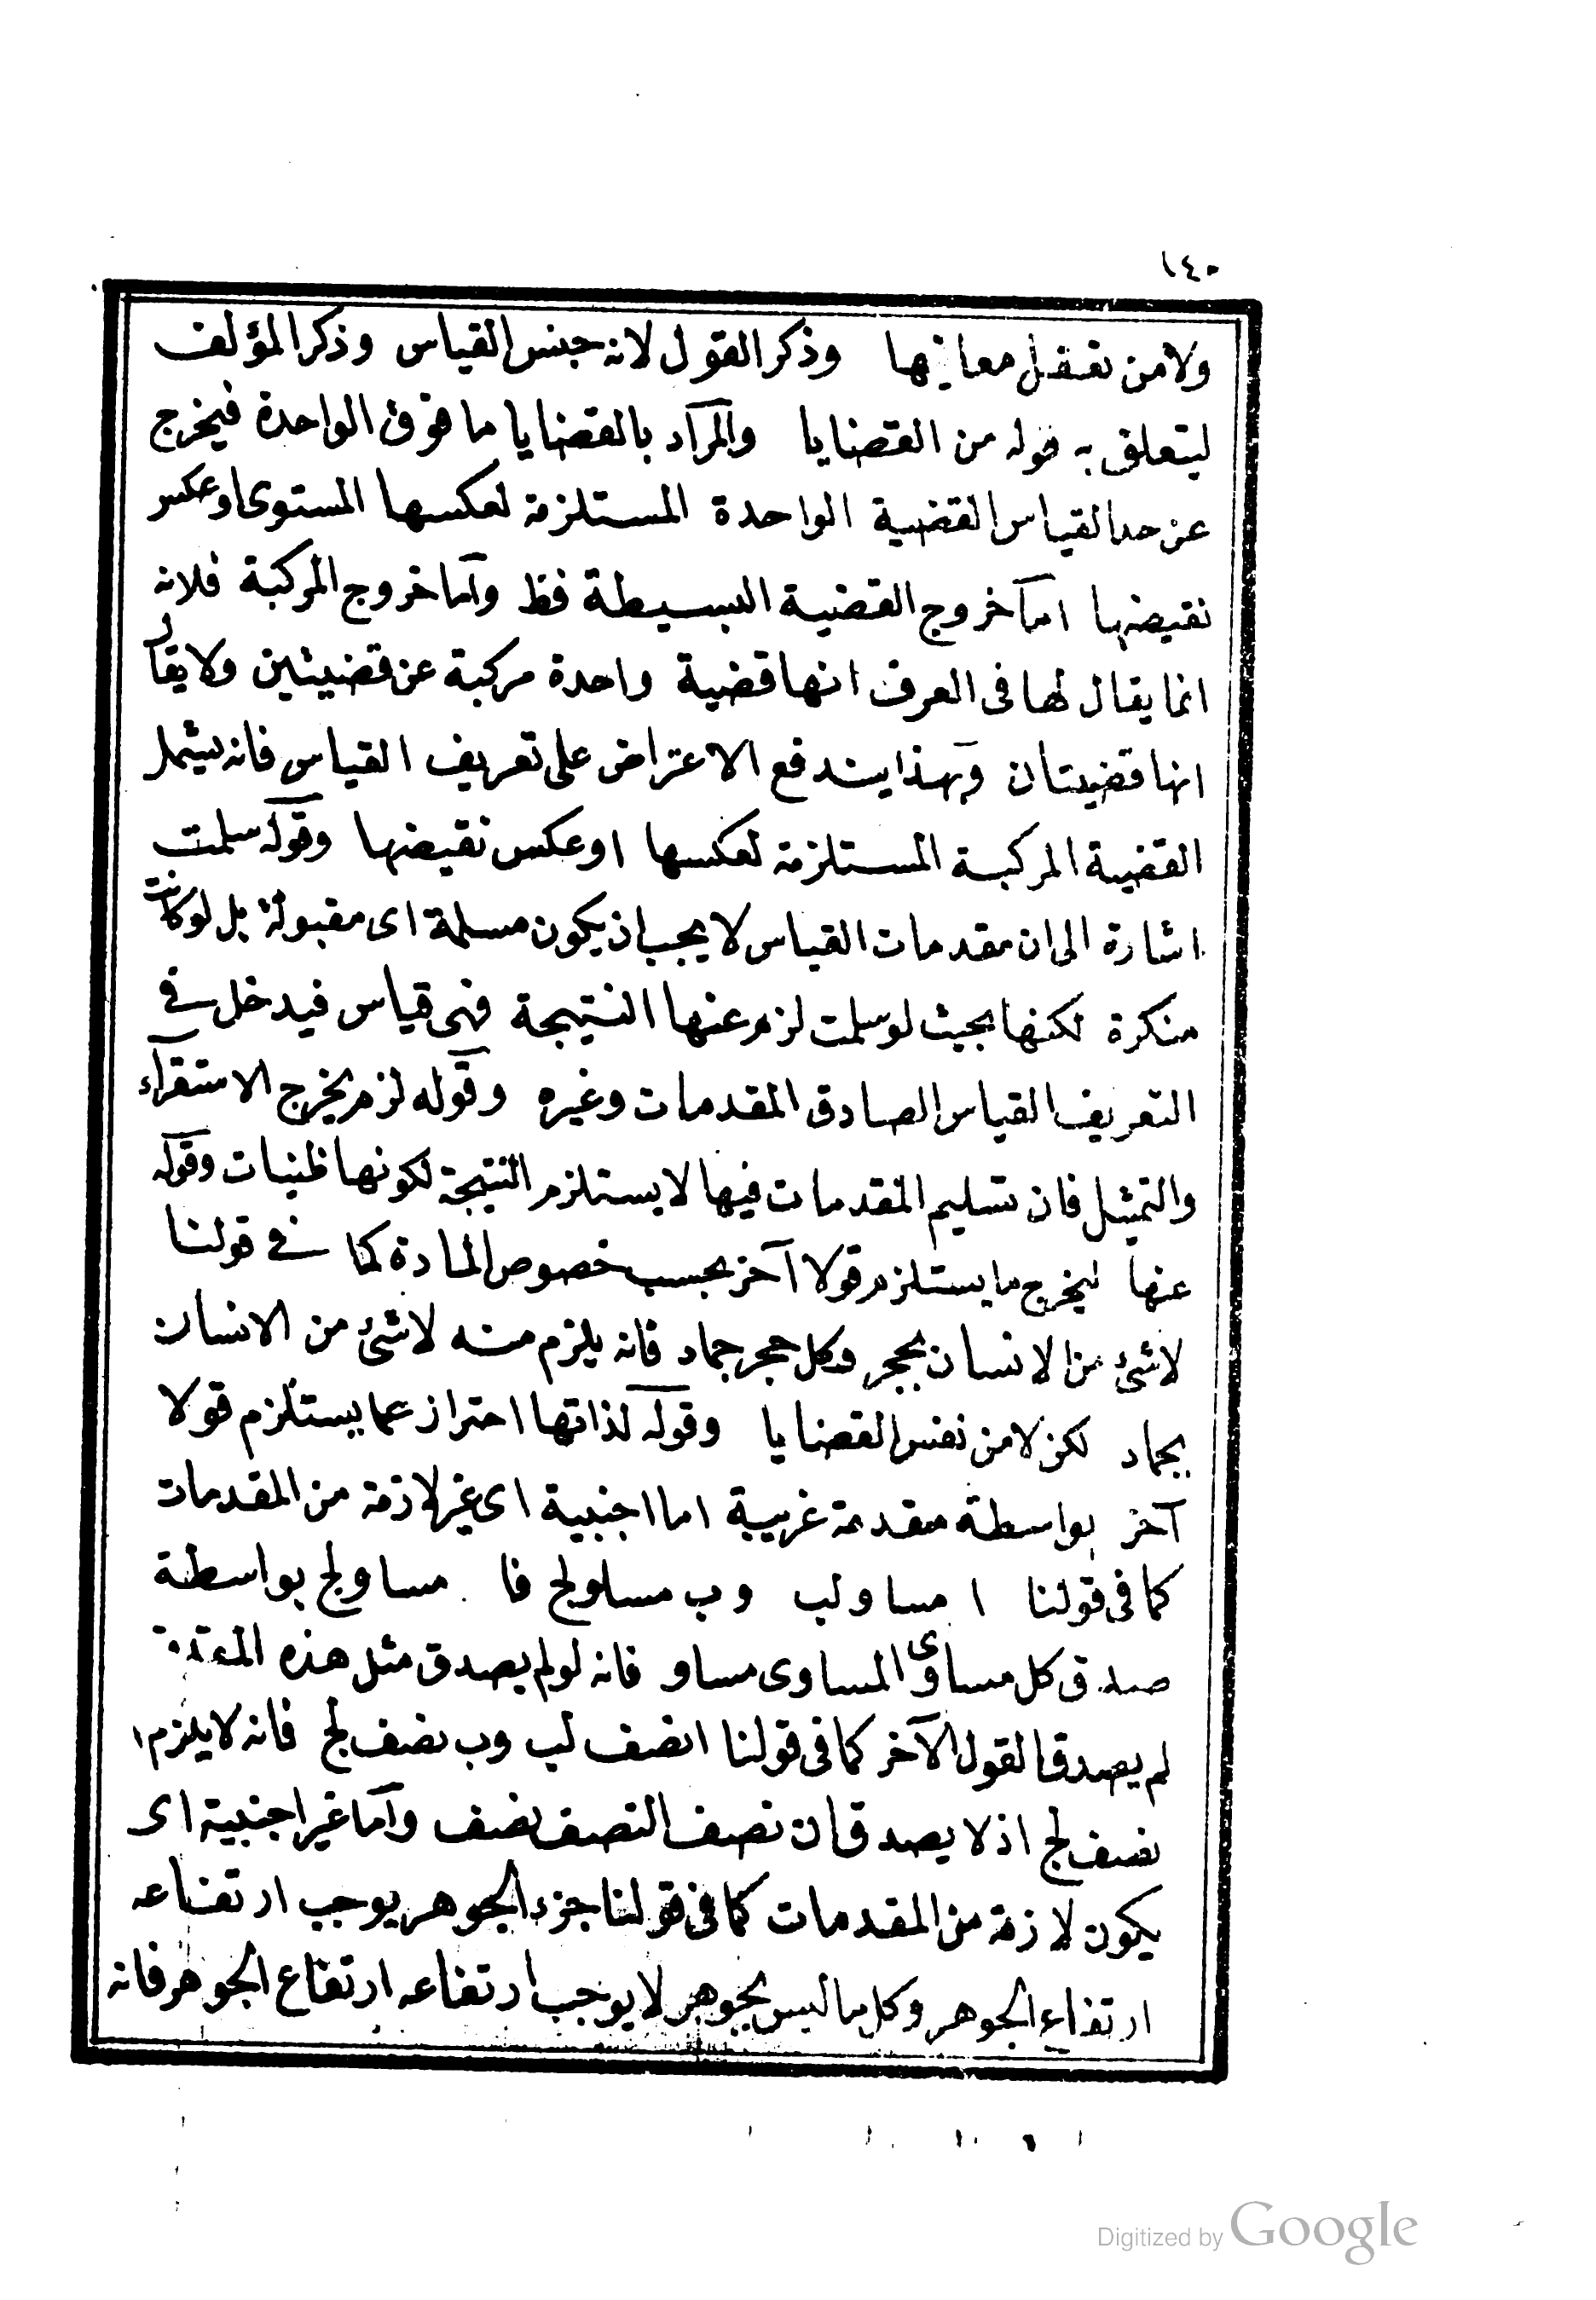 ١٤٠
ولا من تعقل معانيها وذكر القول لانه جنس القياس وذكر المؤلف
ليتعلق به قوله من القضايا والمراد بالقضايا ما فوق الواحدة فيخرج
عن حد القياس القضية الواحدة المستلزمة لعكسها المستوى او عكس
نقيضها اما خروج القضية البسيطة فظ واما خروج المركبة فلانه
انما يقال لها فى العرف انها قضية واحدة مركبة عن قضيتين ولا يقال
انها قضيتان وبهذا يندفع الاعتراض على تعريف القياس فانه يشمل
القضية المركبة المستلزمة لعكسها او عكس نقيضها وقوله سلمت
اشارة الى ان مقدمات القياس لا يجب ان يكون مسلمة اى مقبولة بل لو كانت
منكرة لكنها بحيث لو سلمت لزم عنها النتيجة فهى قياس فيدخل فى
التعريف القياس الصادق المقدمات وغيره وقوله لزم يخرج الاستقراء
والتمثيل فان تسليم المقدمات فيها لا يستلزم النتيجة لكونها ظنيات وقوله
عنها ليخرج ما يستلزم قولا آخر بحسب خصوص المادة كما فى قولنا
لاشئ من الانسان بحجر وكل حجر جماد فانه يلزم منه لاشئ من الانسان
بجماد لكن لا من نفس القضايا وقوله لذاتها احتراز عما يستلزم قولا
آخر بواسطة مقدمة غريبة اما اجنبية اى غير لازمة من المقدمات
كما فى قولنا ا مساو لب وب مساو لج فا مساو لج بواسطة
صدق كل مساوى المساوى مساو فانه لو لم يصدق مثل هذه المقدمة
لم يصدق القول الآخر كما فى قولنا ا نصف لب وب نصف لج فانه لا يلزم ا
نصف لج اذ لا يصدق ان نصف النصف نصف واما غير اجنبية اى
يكون لازمة من المقدمات كما فى قولنا جزء الجوهر يوجب ارتفاعه
ارتفاع الجوهر وكل ما ليس بجوهر لا يوجب ارتفاعه ارتفاع الجوهر فانه
Digitized by Google